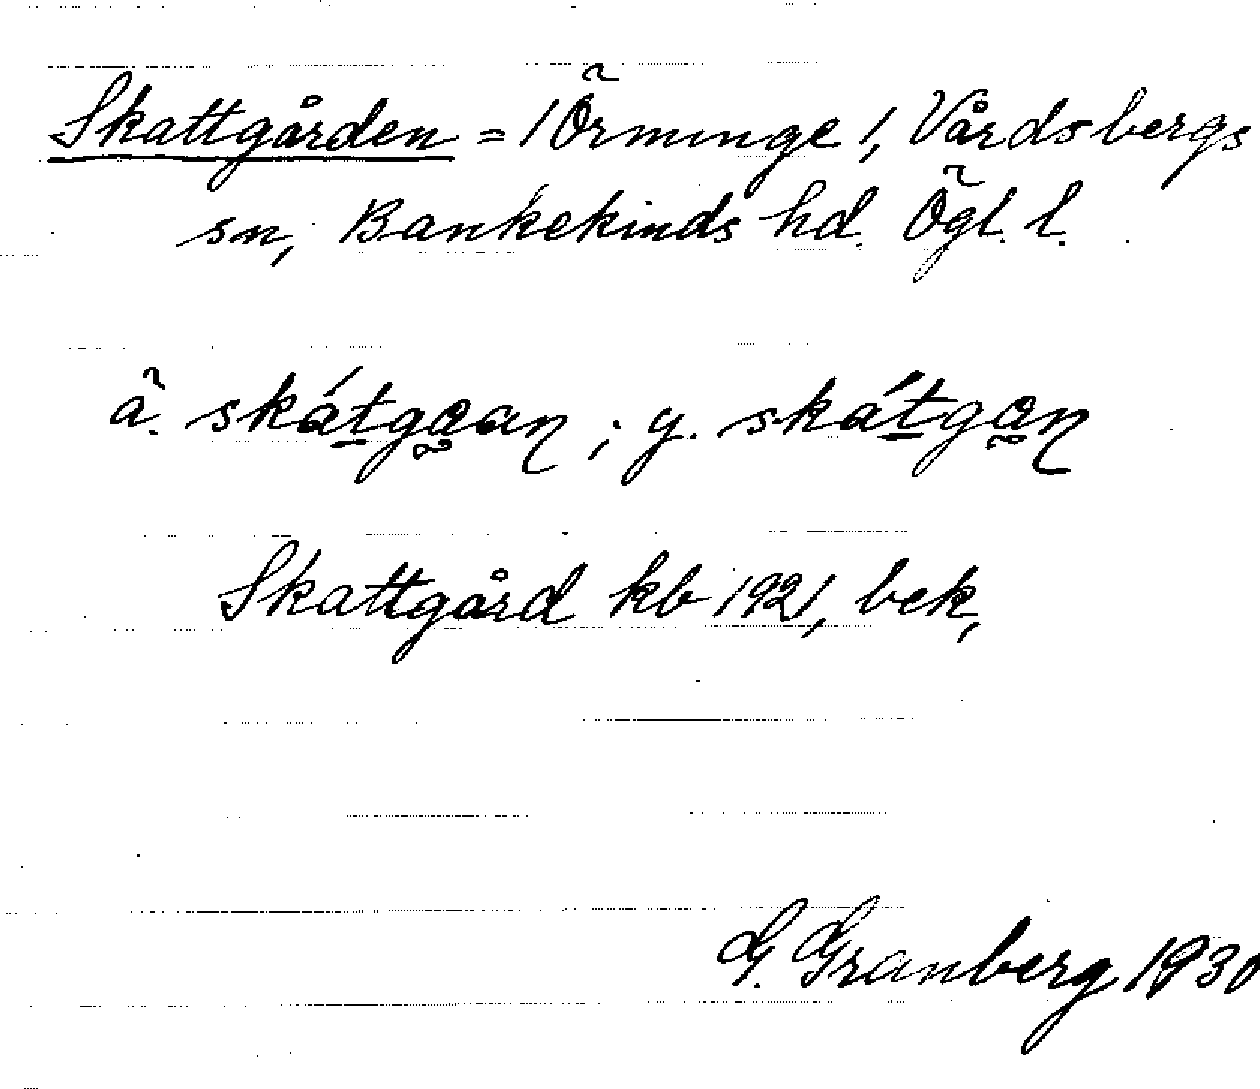 Skattgården = /Örminge/, Vårdsbergs
sn, Bankekinds hd. Ögl. l.
ä. skátgɑan ; y. skátgɑn
Skattgård kb 1921, bek,
G. Granberg 1930